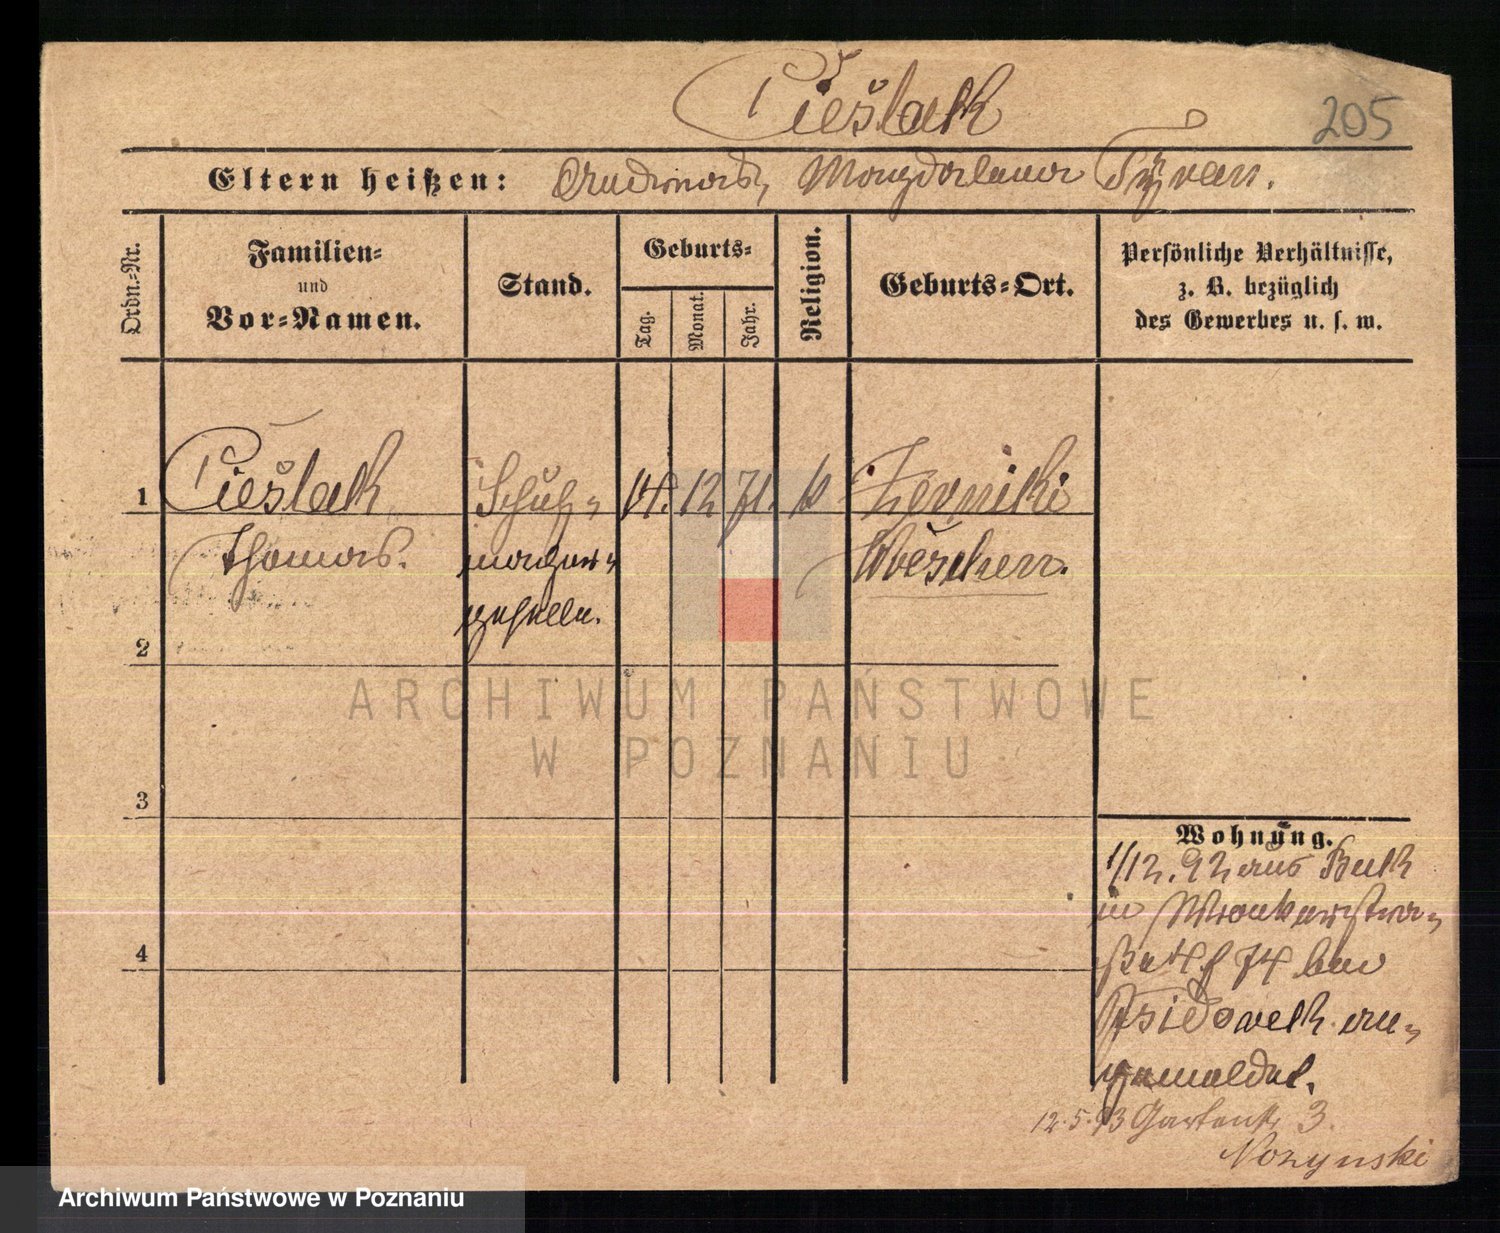 Cieślak
205
Eltern heißen: Andreas, Magdalena
Ordn.-Nr.
Familien-
und
Vor-Namen.
Stand.
Geburts-
Tag.
Monat.
Jahr.
Religion.
Geburts-Ort.
Persönliche Verhältnisse,
z. B. bezüglich
des Gewerbes u. s. w.
1
Cieślak
Thomas.
Schuh-
macher-
geselle.
14. 12 71. k
Zerniki
Wreschen.
2
3
4
Wohnung.
1/12.92 aus Buk
in Wronkerstra-
ße 4 f 74 bei
an-
gemeldet.
12.5.93 Gartenstr 3.
ARCHIWUM PAŃSTWOWE
W POZNANIU
Archiwum Państwowe w Poznaniu